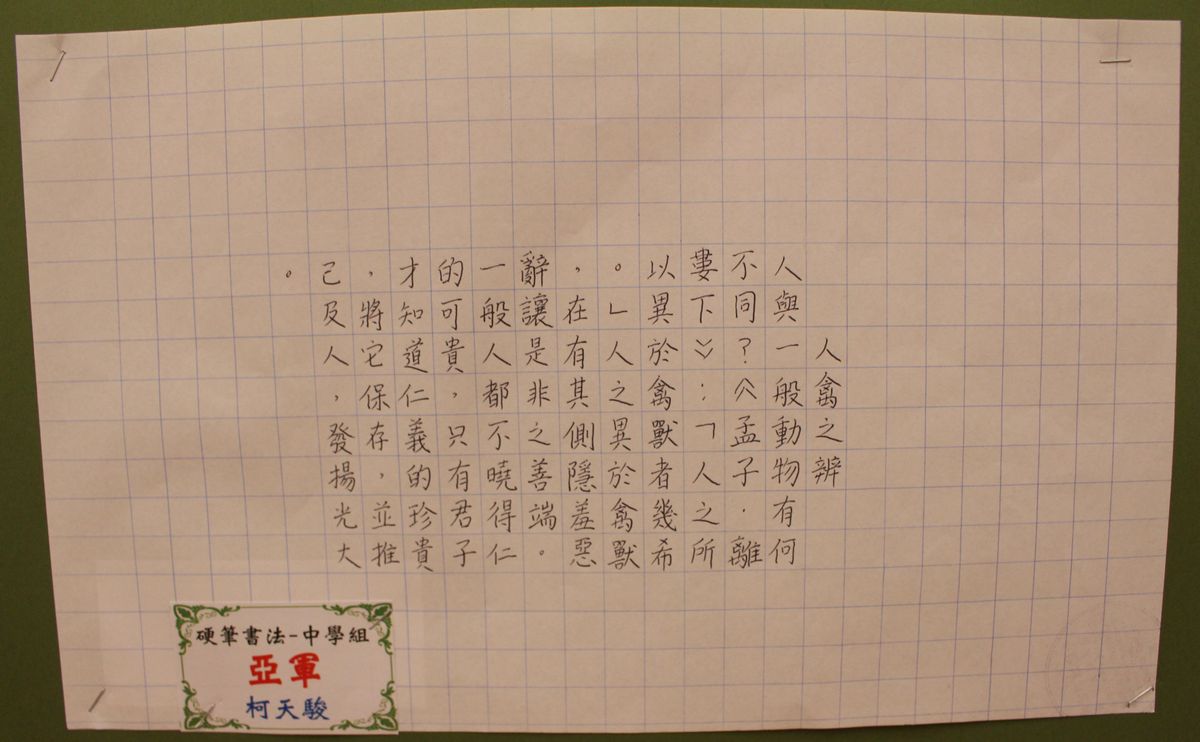 人禽之辨
人與一般動物有何
不同？《孟子．離
婁下》：「人之所
以異於禽獸者幾希
。」人之異於禽獸
，在有其側隱羞惡
辭讓是非之善端。
一般人都不曉得仁
的可貴，只有君子
才知道仁義的珍貴
，將它保存，並推
己及人，發揚光大
。
硬筆書法-中學組
亞軍
柯天駿